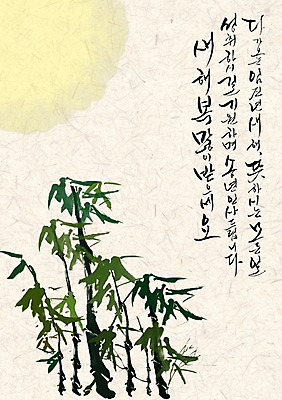 다가오는 임진년 새해, 뜻하시는 모든 일
성취하시길 기원하며 송년인사 드립니다.
새해 복 많이 받으세요